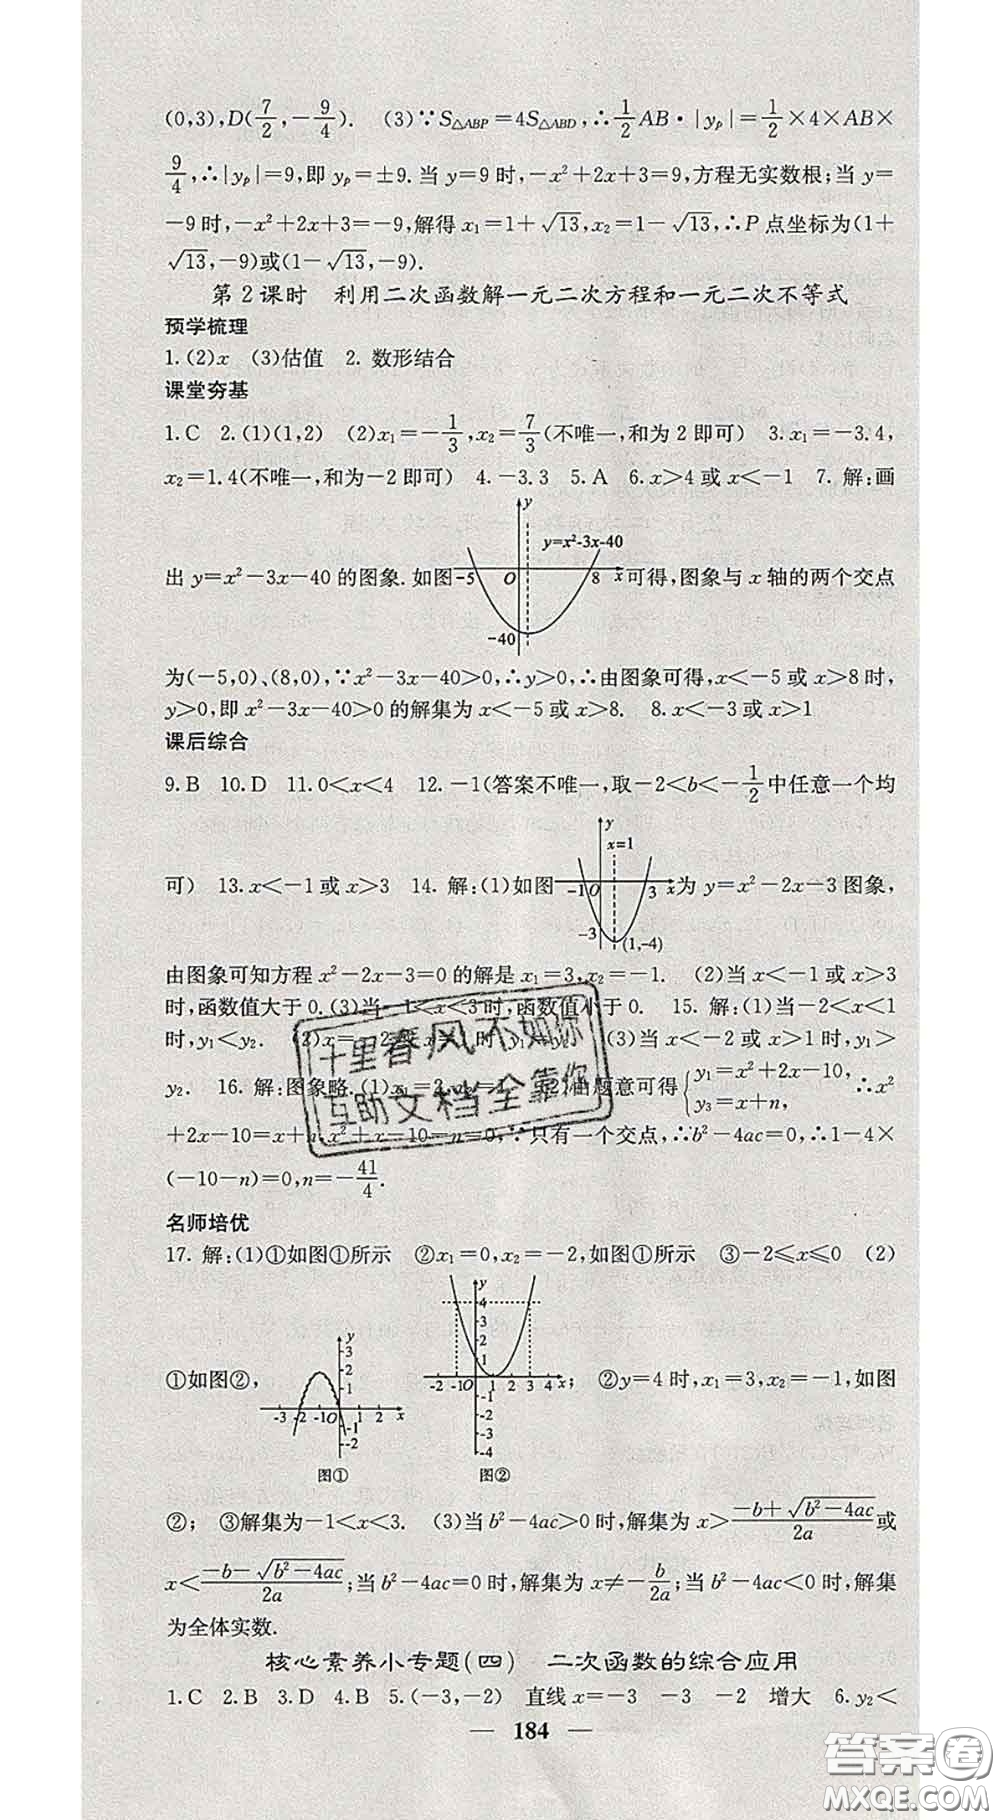 (0,3),D(7/2,-9/4). (3)∵S△ABP=4S△ABD,∴1/2AB·|yp|=1/2×4×AB×
9/4,∴|yp|=9,即yp=±9.当y=9时,-x²+2x+3=9,方程无实数根;当y=
-9时,-x²+2x+3=-9,解得x₁=1+√13,x₂=1-√13,∴P点坐标为(1+
√13,-9)或(1-√13,-9).
第2课时 利用二次函数解一元二次方程和一元二次不等式
预学梳理
1.(2)x (3)估值 2. 数形结合
课堂夯基
1.C 2.(1)(1,2) (2)x₁=-1/3,x₂=7/3(不唯一,和为2即可) 3.x₁=-3.4,
x₂=1.4(不唯一,和为-2即可) 4.-3.3 5.A 6.x>4或x<-1 7. 解:画
y
y=x²-3x-40
出y=x²-3x-40的图象.如图 -5 O 8 x 可得,图象与x轴的两个交点
-40
为(-5,0)、(8,0),∵x²-3x-40>0,∴y>0,∴由图象可得,x<-5或x>8时,
y>0,即x²-3x-40>0的解集为x<-5或x>8. 8.x<-3或x>1
课后综合
9.B 10.D 11.0<x<4 12.-1(答案不唯一,取-2<b<-1/2中任意一个均
y
x=1
可) 13.x<-1或x>3 14. 解:(1)如图 -1 O 3 x 为y=x²-2x-3图象,
-3 (1,-4)
由图象可知方程x²-2x-3=0的解是x₁=3,x₂=-1. (2)当x<-1或x>3
时,函数值大于0.(3)当-1<x<3时,函数值小于0. 15. 解:(1)当-2<x<1
时,y₁<y₂. (2)x=-2或x=1时,y₁=y₂. (3)当x<-2或x>1时,y₁>
y₂. 16. 解:图象略.(1)x₁=2,x₂= (2)由题意可得{y₁=x²+2x-10, y₃=x+n, ∴x²
+2x-10=x+n,x²+x-10-n=0,∵只有一个交点,∴b²-4ac=0,∴1-4×
(-10-n)=0,n=-41/4.
十里春风不如你
互助文档全靠你
名师培优
17. 解:(1)①如图①所示 ②x₁=0,x₂=-2,如图①所示 ③-2≤x≤0 (2)
①如图②, ; ②y=4时,x₁=3,x₂=-1,如图
y 3 2 1 -3 -2 -1 O 1 2 x -1 -2
图①
y 4 3 2 1 -2 -1 O 1 2 3 4 x -1 -2 -3 -4
图②
②; ③解集为-1<x<3. (3)当b²-4ac>0时,解集为x>(-b+√(b²-4ac))/2a或
x<(-b-√(b²-4ac))/2a;当b²-4ac=0时,解集为x≠-b/2a;当b²-4ac<0时,解集
为全体实数.
核心素养小专题(四) 二次函数的综合应用
1.C 2.B 3.D 4.B 5.(-3,-2) 直线x=-3 -3 -2 增大 6.y₂<
— 184 —
答案圈
MXQE.COM